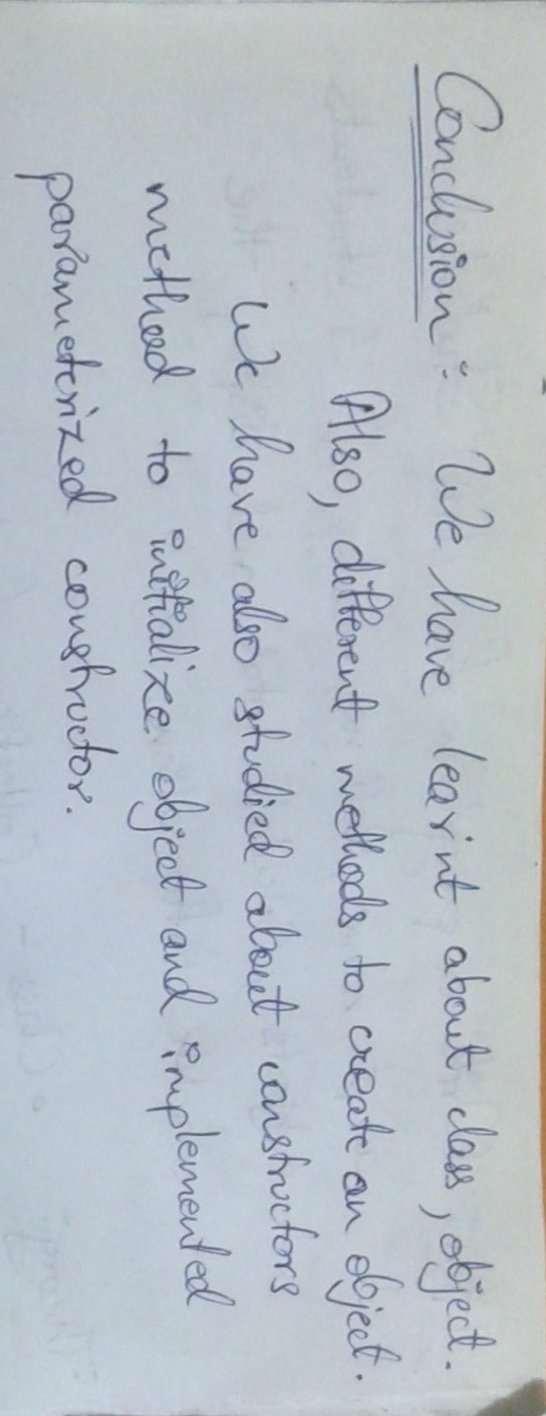 Conclusion: We have learnt about class, object.
Also, different methods to create an object.
We have also studied about constructors
method to initialize object and implemented
parameterized constructor.